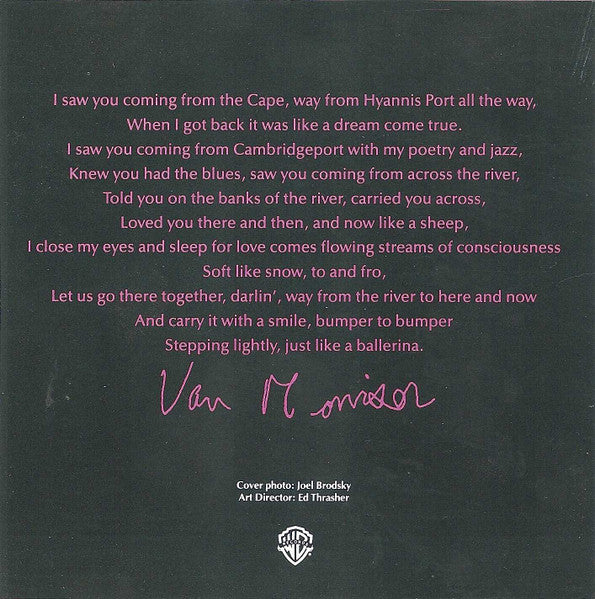 I saw you coming from the Cape, way from Hyannis Port all the way,
When I got back it was like a dream come true.
I saw you coming from Cambridgeport with my poetry and jazz,
Knew you had the blues, saw you coming from across the river,
Told you on the banks of the river, carried you across,
Loved you there and then, and now like a sheep,
I close my eyes and sleep for love comes flowing streams of consciousness
Soft like snow, to and fro,
Let us go there together, darlin', way from the river to here and now
And carry it with a smile, bumper to bumper
Stepping lightly, just like a ballerina.
Van Morrison
Cover photo: Joel Brodsky
Art Director: Ed Thrasher
WB